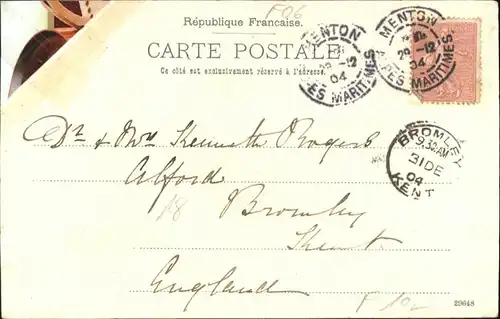 F06
République Française.
CARTE POSTALE
Ce côté est exclusivement réservé à l'adresse.
MENTON
29 -12
04
ALPES MARITIMES
MENTON
29 -12
04
ALPES MARITIMES
BROMLEY
9.30AM
31 DE
04
KENT
Dr & Mrs Kenneth Rogers
Alford
18 Bromley
Kent
England
F 10
29648